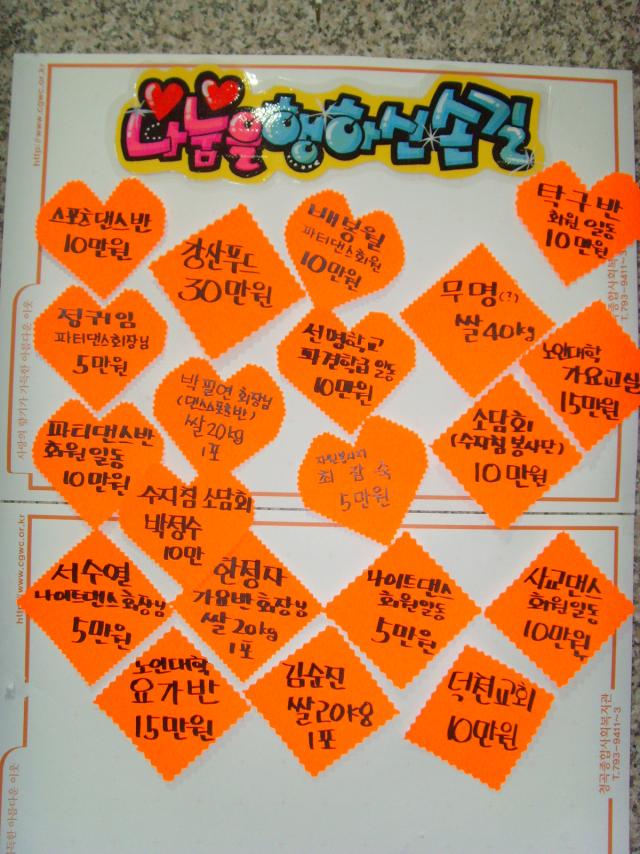 나눔을 행하신 손길
스포츠댄스반
10만원
강산푸드
30만원
배봉월
파티댄스회원
10만원
탁구반
회원 일동
10만원
무명(?)
쌀 40kg
정귀임
파티댄스회장님
5만원
선명학교
파견학급 일동
10만원
노인대학
가요교실
15만원
박필연 회장님
(댄스스포츠반)
쌀 20kg
1포
소담회
(수지침 봉사단)
10만원
파티댄스반
회원일동
10만원
자원봉사자
최 감 숙
5만원
수지침 소담회
박정수
10만
서수열
나이트댄스 회장님
5만원
한정자
가요반 회장님
쌀 20kg
1포
나이트댄스
회원일동
5만원
사교댄스
회원일동
10만원
노인대학
요가반
15만원
김순진
쌀 20kg
1포
덕편교회
10만원
http://www.cgwc.or.kr
사랑의 향기가 가득한 아름다운 이웃
T.793-9411~3
http://www.cgwc.or.kr
청곡종합사회복지관
T.793-9411~3